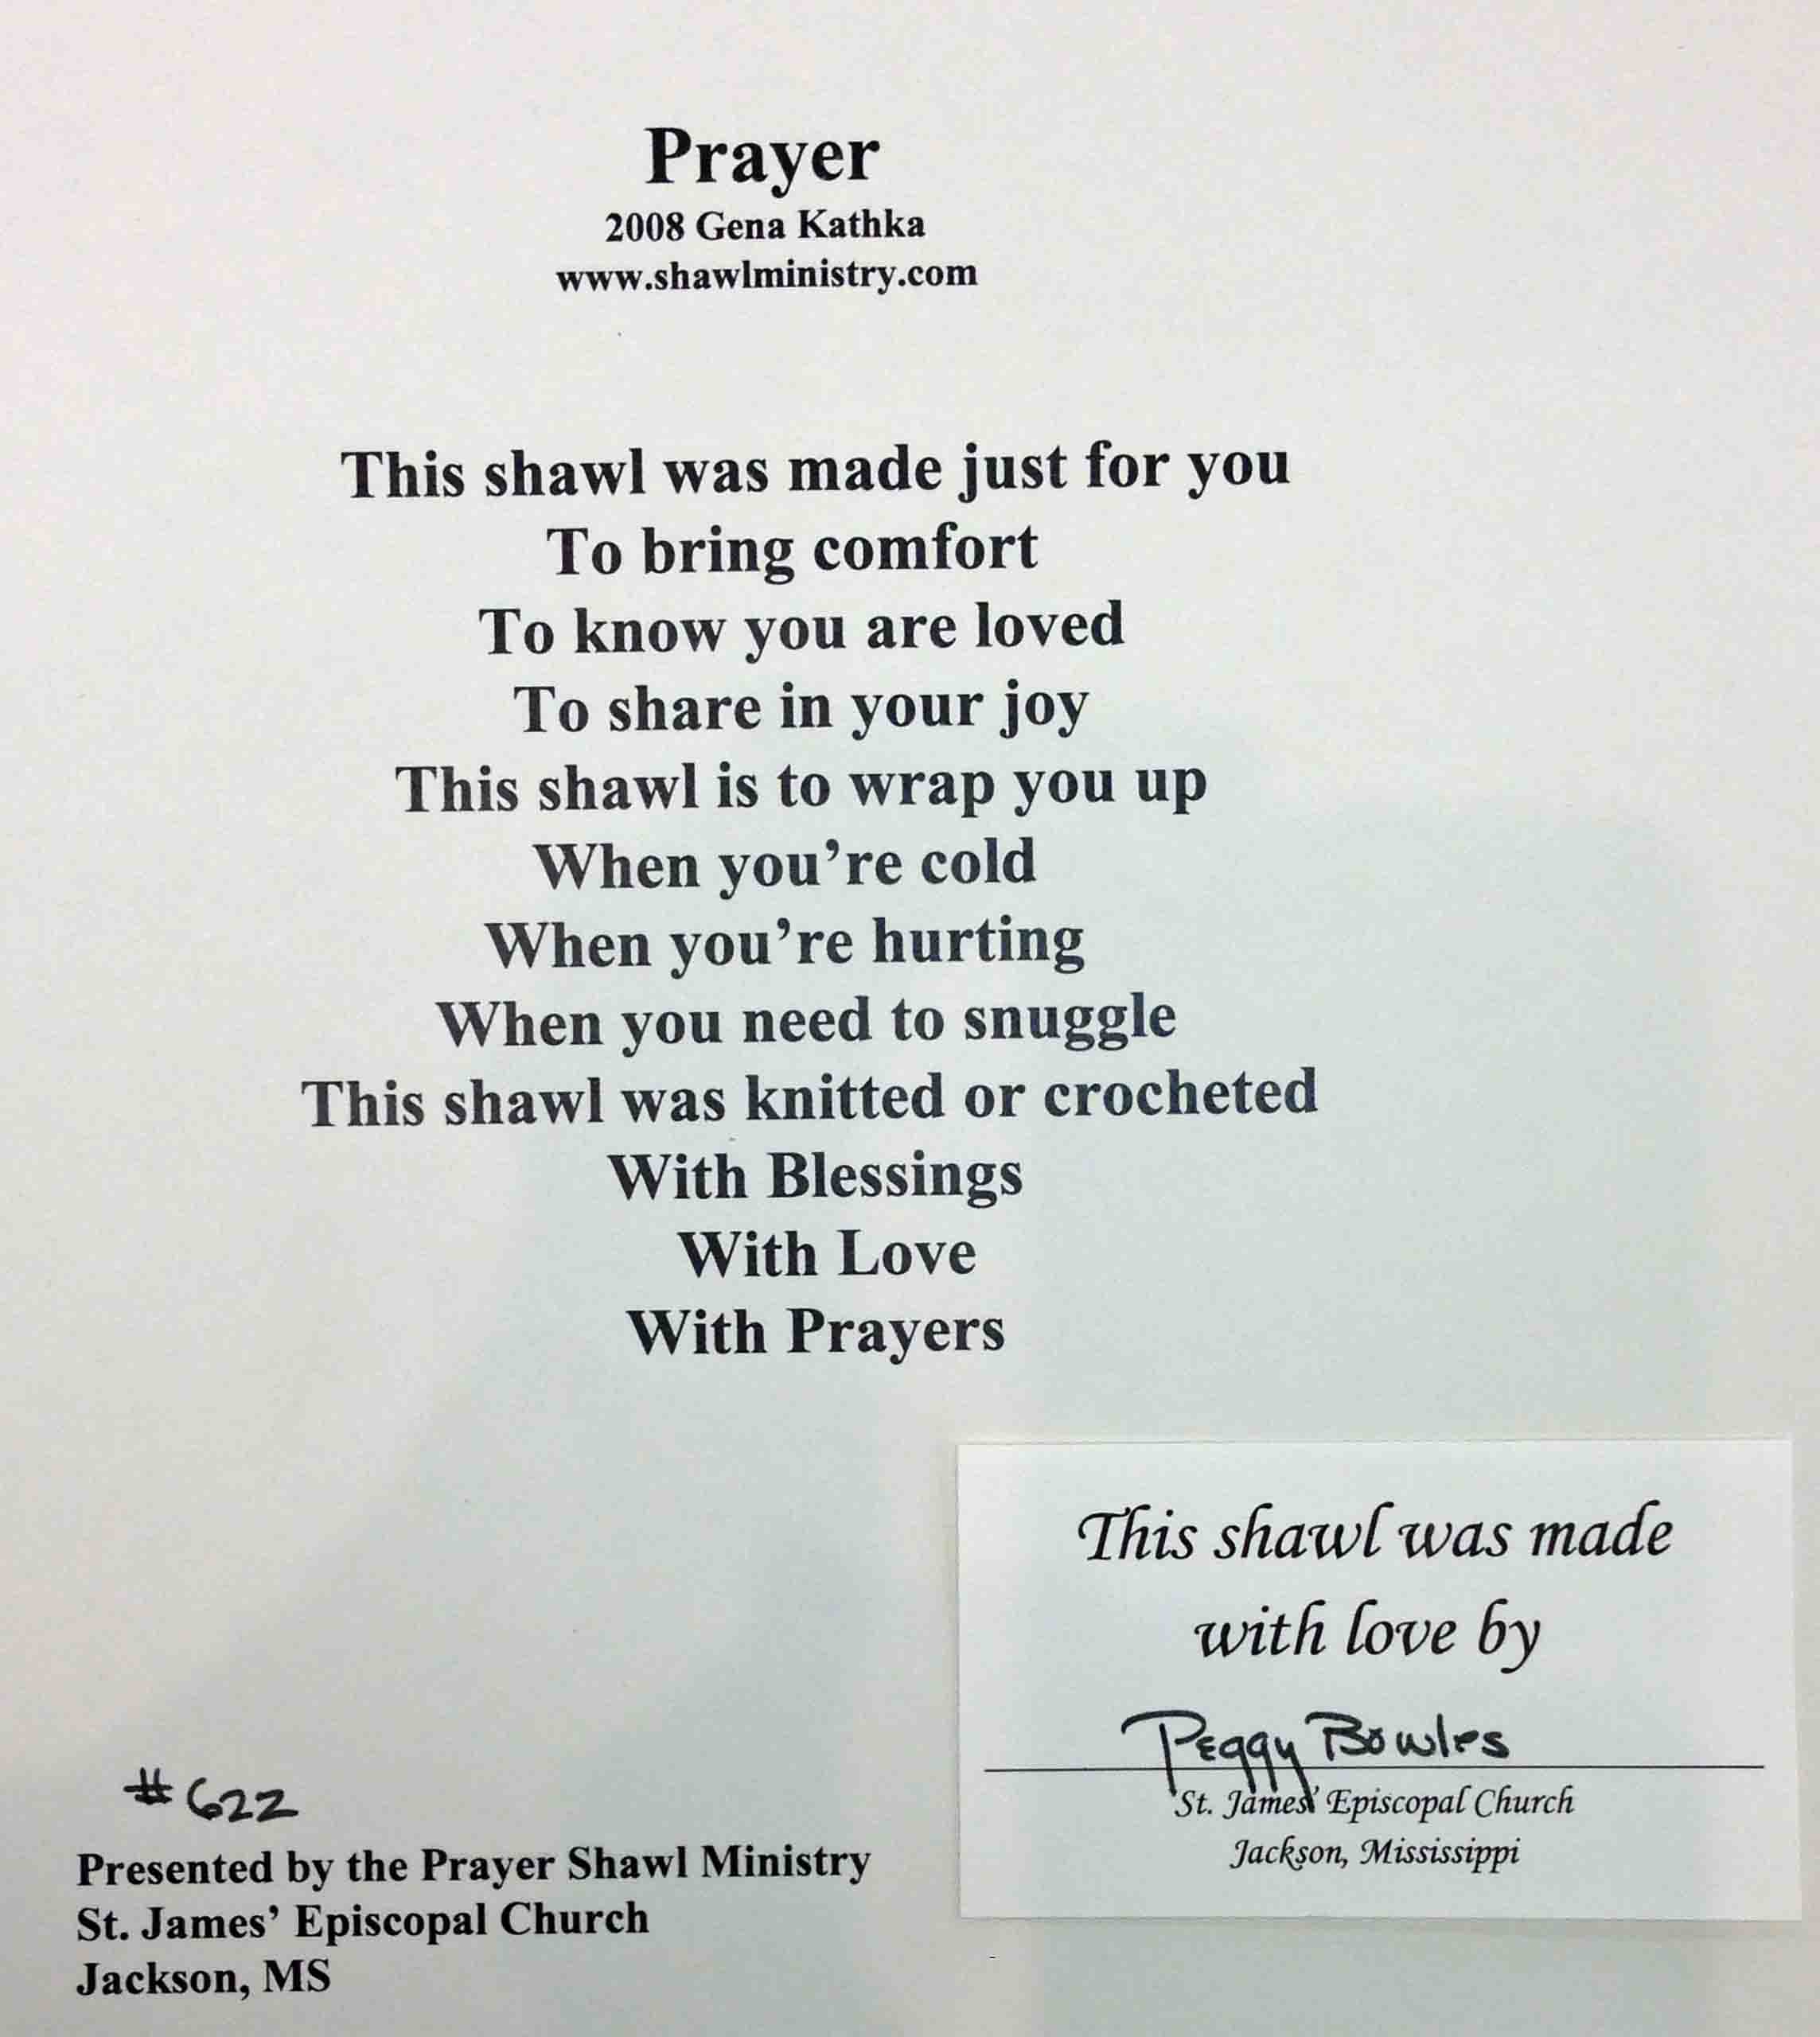 Prayer
2008 Gena Kathka
www.shawlministry.com
This shawl was made just for you
To bring comfort
To know you are loved
To share in your joy
This shawl is to wrap you up
When you're cold
When you're hurting
When you need to snuggle
This shawl was knitted or crocheted
With Blessings
With Love
With Prayers
This shawl was made
with love by
Peggy Bowles
St. James' Episcopal Church
Jackson, Mississippi
#622
Presented by the Prayer Shawl Ministry
St. James' Episcopal Church
Jackson, MS